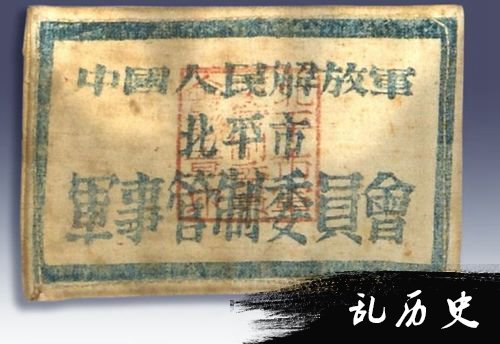 中國人民解放軍
北平市
軍事管制委員會
乱历史